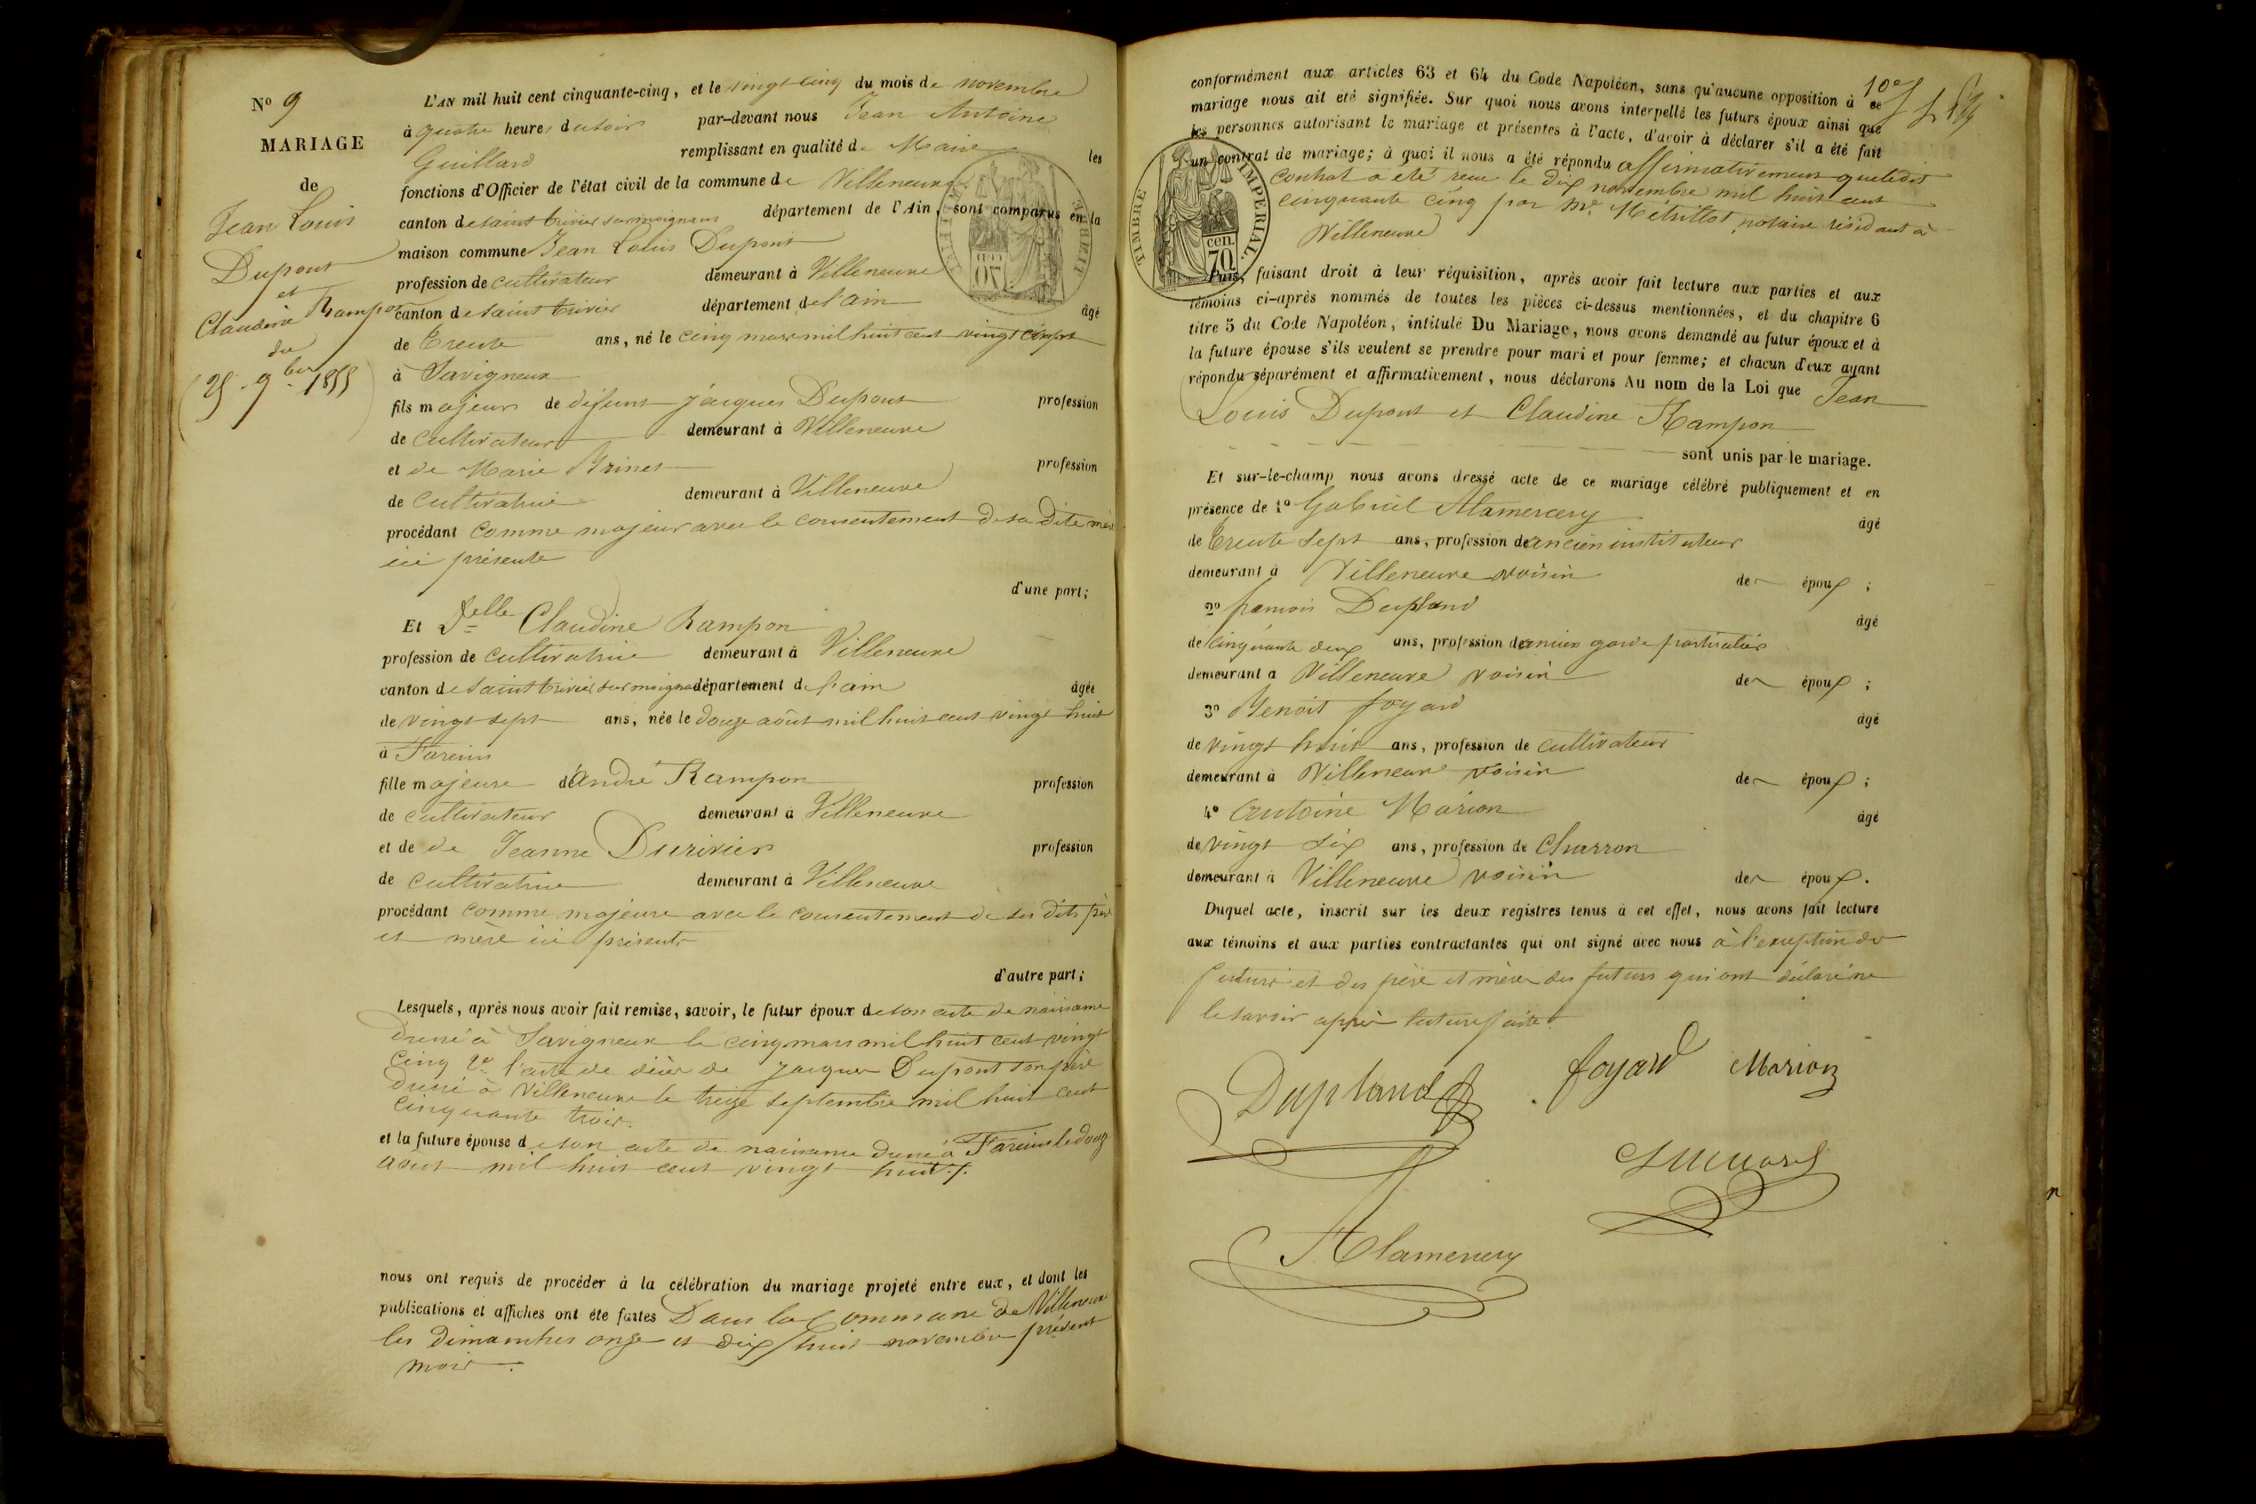 N° 9
MARIAGE
de
Jean Louis
Dupont
et
Claudine Rampon
du
(25 - 9bre 1855)
L'AN mil huit cent cinquante-cinq, et le vingt cinq du mois de novembre
à quatre heures du soir par-devant nous Jean Antoine
Guillard remplissant en qualité de Maire les
fonctions d'Officier de l'état civil de la commune de Villeneuve
canton de saint trivier sur moignans département de l'Ain, sont comparus en la
maison commune Jean Louis Dupont
profession de cultivateur demeurant à Villeneuve
canton de saint trivier département de l'ain âgé
de trente ans, né le cinq mars mil huit cent vingt cinq
à Savigneux
fils majeur de défunt Jacques Dupont profession
de cultivateur demeurant à Villeneuve
et de Marie profession
de cultivatrice demeurant à Villeneuve
procédant comme majeur avec le consentement de sa dite mère
ici présente
d'une part;
Et Delle Claudine Rampon
profession de cultivatrice demeurant à Villeneuve
canton de saint trivier sur moignans département de l'ain âgée
de vingt sept ans, née le douze août mil huit cent vingt huit
à Fareins
fille majeure d'André Rampon profession
de cultivateur demeurant à Villeneuve
et de de Jeanne Durivier profession
de cultivatrice demeurant à Villeneuve
procédant comme majeure avec le consentement de ses dits père
et mère ici présents
d'autre part;
Lesquels, après nous avoir fait remise, savoir, le futur époux de son acte de naissance
dressé à Savigneux le cinq mars mil huit cent vingt
cinq 2° l'acte de décès de Jacques Dupont son père
dressé à Villeneuve le treize septembre mil huit cent
cinquante trois.
et la future épouse de son acte de naissance dressé à Fareins le douze
août mil huit cent vingt huit.
nous ont requis de procéder à la célébration du mariage projeté entre eux, et dont les
publications et affiches ont été faites Dans la Commune de Villeneuve
les dimanches onze et dix huit novembre présent
mois.
10e
conformément aux articles 63 et 64 du Code Napoléon, sans qu'aucune opposition à ce
mariage nous ait été signifiée. Sur quoi nous avons interpellé les futurs époux ainsi que
les personnes autorisant le mariage et présentes à l'acte, d'avoir à déclarer s'il a été fait
un contrat de mariage; à quoi il nous a été répondu affirmativement que ledit
contrat a été reçu le dix novembre mil huit cent
cinquante cinq par Me Métrillot notaire résidant à
Villeneuve
TIMBRE IMPERIAL
70 cen.
Puis, faisant droit à leur réquisition, après avoir fait lecture aux parties et aux
témoins ci-après nommés de toutes les pièces ci-dessus mentionnées, et du chapitre 6
titre 5 du Code Napoléon, intitulé Du Mariage, nous avons demandé au futur époux et à
la future épouse s'ils veulent se prendre pour mari et pour femme; et chacun d'eux ayant
répondu séparément et affirmativement, nous déclarons Au nom de la Loi que Jean
Louis Dupont et Claudine Rampon
sont unis par le mariage.
Et sur-le-champ nous avons dressé acte de ce mariage célébré publiquement et en
présence de 1° Gabriel Alamercery âgé
de trente sept ans, profession de ancien instituteur
demeurant à Villeneuve voisin des époux;
2° françois Dupland âgé
de cinquante deux ans, profession de ancien garde particulier
demeurant à Villeneuve voisin des époux;
3° Benoit foyard âgé
de vingt huit ans, profession de cultivateur
demeurant à Villeneuve voisin des époux;
4° Antoine Marion âgé
de vingt six ans, profession de Charron
demeurant à Villeneuve voisin des époux.
Duquel acte, inscrit sur les deux registres tenus à cet effet, nous avons fait lecture
aux témoins et aux parties contractantes qui ont signé avec nous à l'exception des
futurs et des père et mère des futurs qui ont déclaré ne
le savoir après lecture faite.
Dupland foyard Marion
Alamercery